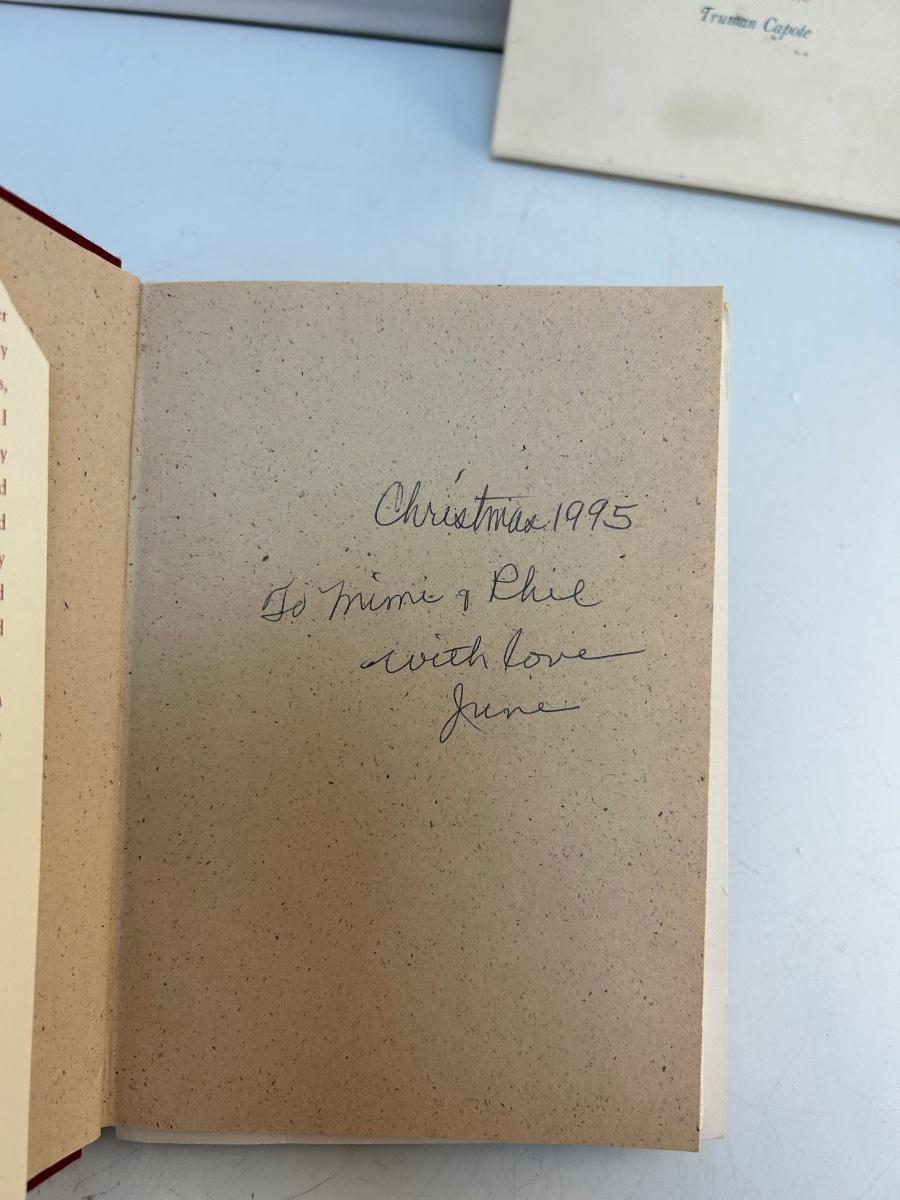 Truman Capote
er
y
s,
I
y
d
d
y
d
d
Christmas 1995
To Mimi & Phil
with love
June